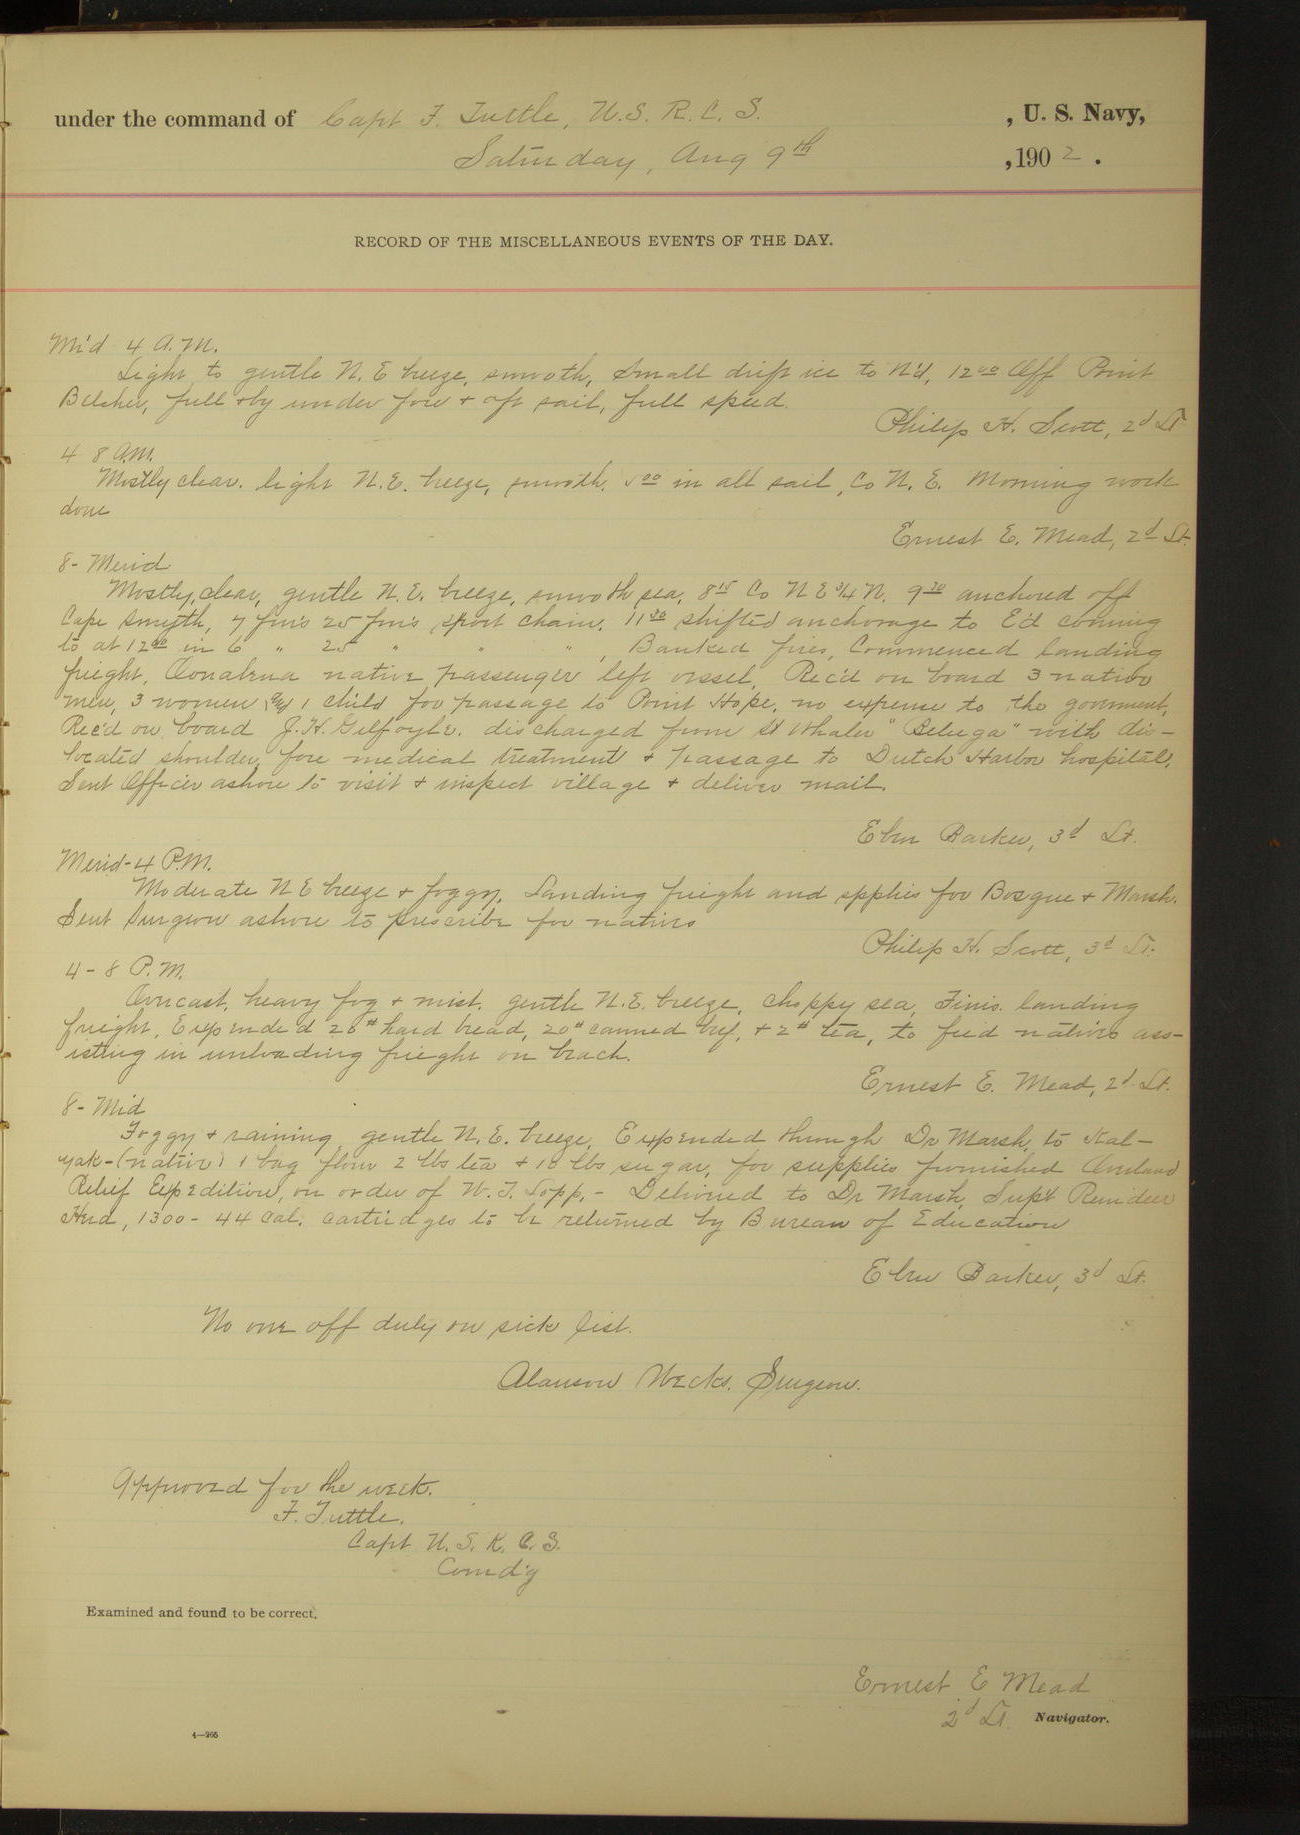 under the command of Capt F. Tuttle, U.S. R. C. S. , U. S. Navy,
Saturday, Aug 9th , 190 2 .
RECORD OF THE MISCELLANEOUS EVENTS OF THE DAY.
Mid 4 A.M.
Light to gentle N. E breeze, smooth, small drift ice to N'd, 12 00 Off Point
Belcher, full & by under fore & aft sail, full speed.
Philip H. Scott, 2d Lt
4 8 A.M.
Mostly clear. light N.E. breeze, smooth. 5 00 in all sail, Co N. E. Morning work
done
Ernest E. Mead, 2d Lt.
8- Merid
Mostly, clear, gentle N.E. breeze, smooth sea, 8 15 Co N E 3/4 N. 9 30 anchored off
Cape Smyth, 7 fms 25 fms sport chain. 11 30 shifted anchorage to E'd coming
to at 12 00 in 6 " 25 " " " , Banked fires, Commenced landing
freight, native passenger left vessel, Rec'd on board 3 native
men, 3 women & 1 child for passage to Point Hope, no expense to the government,
Rec'd on board J. H. Gilfoyle. discharged from St Whaler "Beluga" with dis-
located shoulder, fore medical treatment & passage to Dutch Harbor hospital,
Sent Officer ashore to visit & inspect village & deliver mail.
Eben Barker, 3d Lt.
Merid-4 P.M.
Moderate N E breeze & foggy. Landing freight and spplies for & Marsh.
Sent Surgeon ashore to prescribe for natives
Philip H. Scott, 3d Lt.
4 - 8 P.M.
Overcast, heavy fog & mist. gentle N.E. breeze, choppy sea, Finis. landing
freight, Expended 28# hard bread, 20# canned beef, & 2# tea, to feed natives ass-
isting in unloading frieght on beach.
Ernest E. Mead, 2d Lt.
8- Mid
Foggy & raining, gentle N.E. breeze, Expended through Dr Marsh, to Kal-
yak-(native) 1 bag flour 2 lbs tea & 10 lbs sugar, for supplies furnished Overland
Relief Expedition, on order of W. T. Lopp. - Delivered to Dr Marsh, Supt Reindeer
Herd, 1300 - 44 Cal. cartridges to be returned by Bureau of Education
Eben Barker, 3d Lt.
No one off duty on sick list.
Alanson Weeks. Surgeon.
Approved for the week.
F. Tuttle.
Capt U. S. R. C. S.
Comd'g
Examined and found to be correct.
Ernest E Mead
2d Lt. Navigator.
4—265